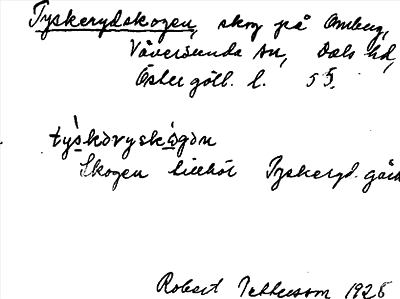 Tyskerydskogen, skog på Omberg,
Väversunda sn, Dals hd,
Östergötl. l. 55.
týskòryskògən
Skogen tillhör Tyskeryd. går
Robert 1928